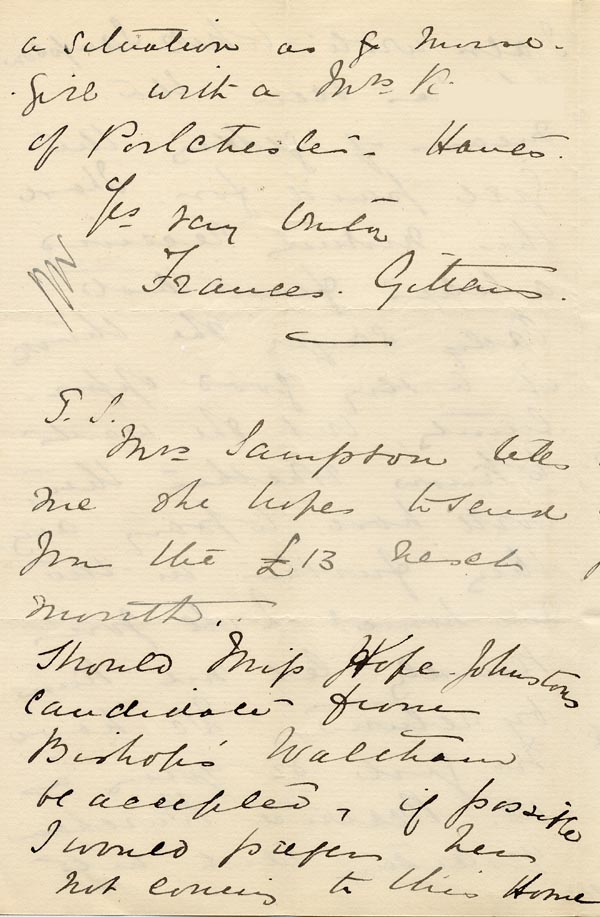 a situation as a nurse-
girl with a Mrs K
of Portchester. Hants.
Yrs very truly
Frances. Gittens.
P.S.
Mrs Sampson tells
me she hopes to send
you the £13 next
month..
Should Miss Hope-Johnstons
candidate from
Bishop's Waltham
be accepted, if possible
I would prefer her
not coming to this Home